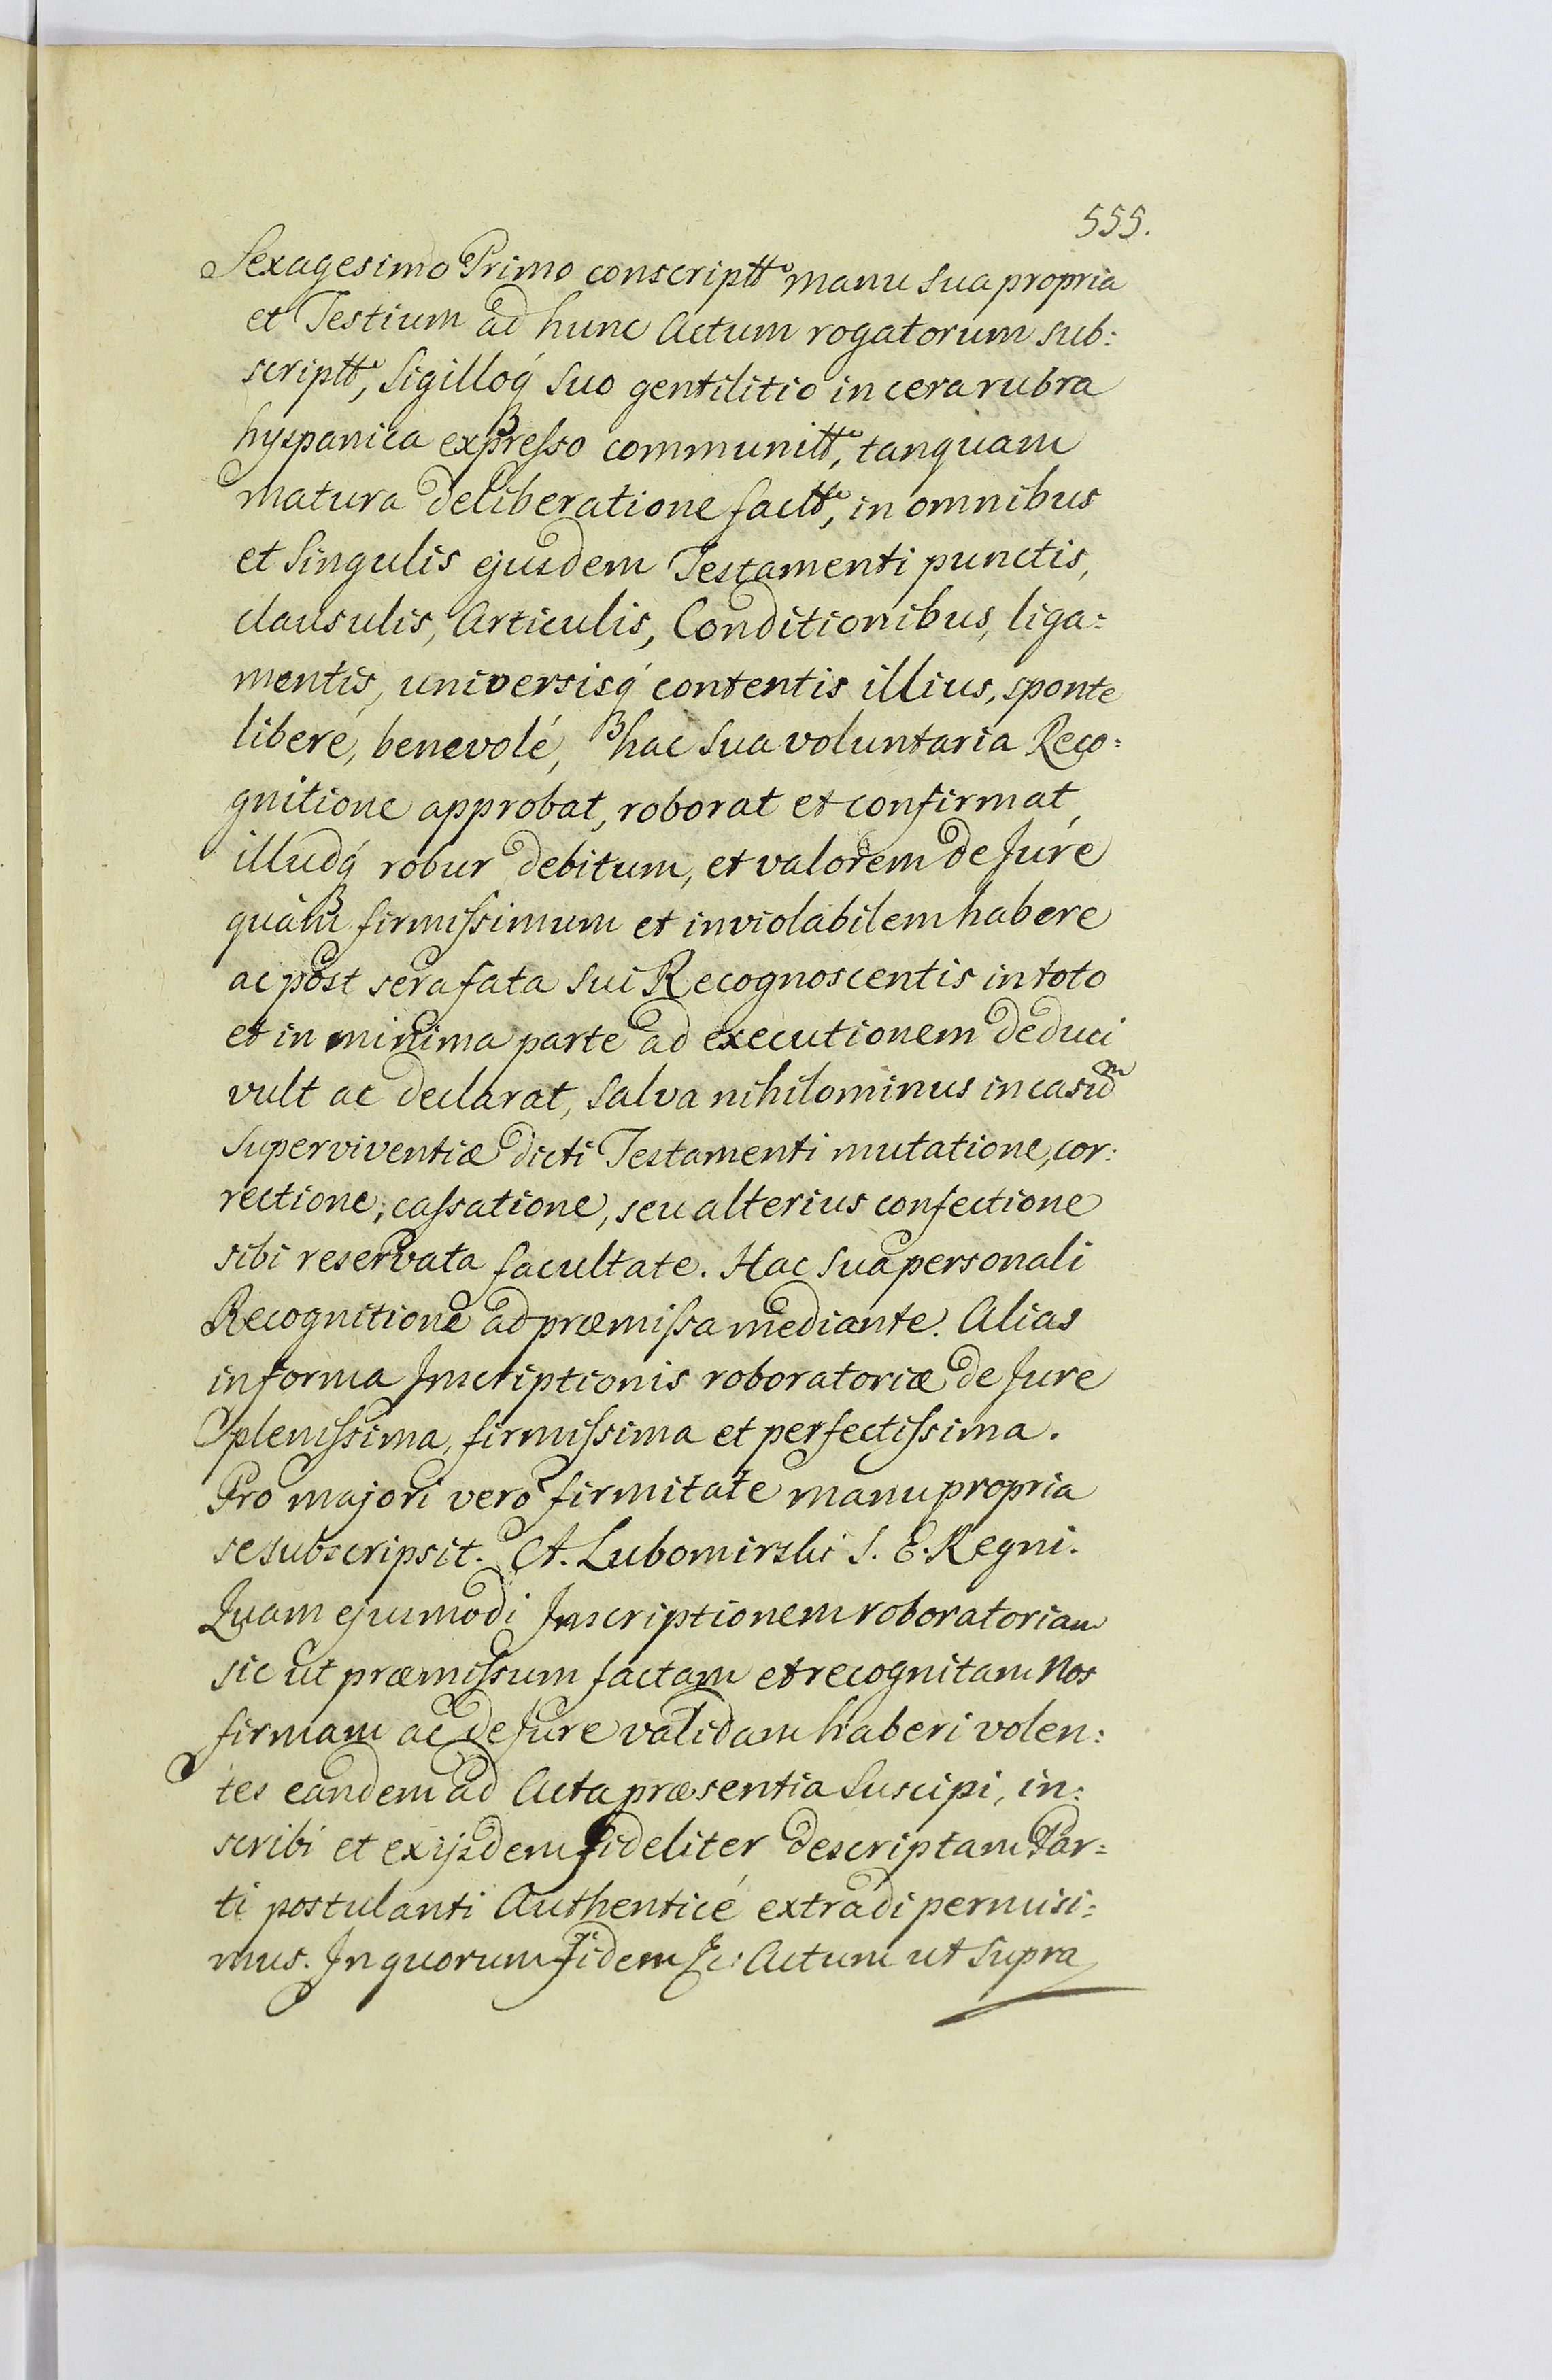 555.
Sexagesimo Primo conscriptto manu sua propria
et Testium ad hunc Actum rogatorum sub:
scriptto, Sigilloq́ suo gentilitio in cera rubra
hyspanica expresso communitto, tanquam
matura deliberatione factto, in omnibus
et Singulis ejusdem Testamenti punctis,
clausulis, Articulis, Conditionibus, liga:
mentis, universisq́ contentis illius, sponte
liberé, benevolé, hac sua voluntaria Reco:
gnitione approbat, roborat et confirmat,
illudq́ robur debitum, et valorem de Jure
quam firmissimum et inviolabilem habere
ac post sera fata sui Recognoscentis in toto
et in minima parte ad executionem deduci
vult ac declarat, salva nihilominus in casu
superviventiæ dicti Testamenti mutatione, cor:
rectione, cassatione, seu alterius confectione
sibi reservata facultate. Hac sua personali
Recognitione ad præmissa mediante. Alias
in forma Inscriptionis roboratoriæ de Jure
plenissima, firmissima et perfectissima.
Pro majori veró firmitate manu propria
se subscripsit. A. Lubomirski S. E. Regni.
Quam ejusmodi Inscriptionem roboratoriam
sic ut præmissum factam et recognitam Nos
firmam ac de Jure validam haberi volen:
tes eandem ad Acta præsentia suscipi, in:
scribi et ex ijsdem fideliter descriptam Par=
ti postulanti Authenticé extradi permisi:
mus. In quorum Fidem &c: Actum ut supra